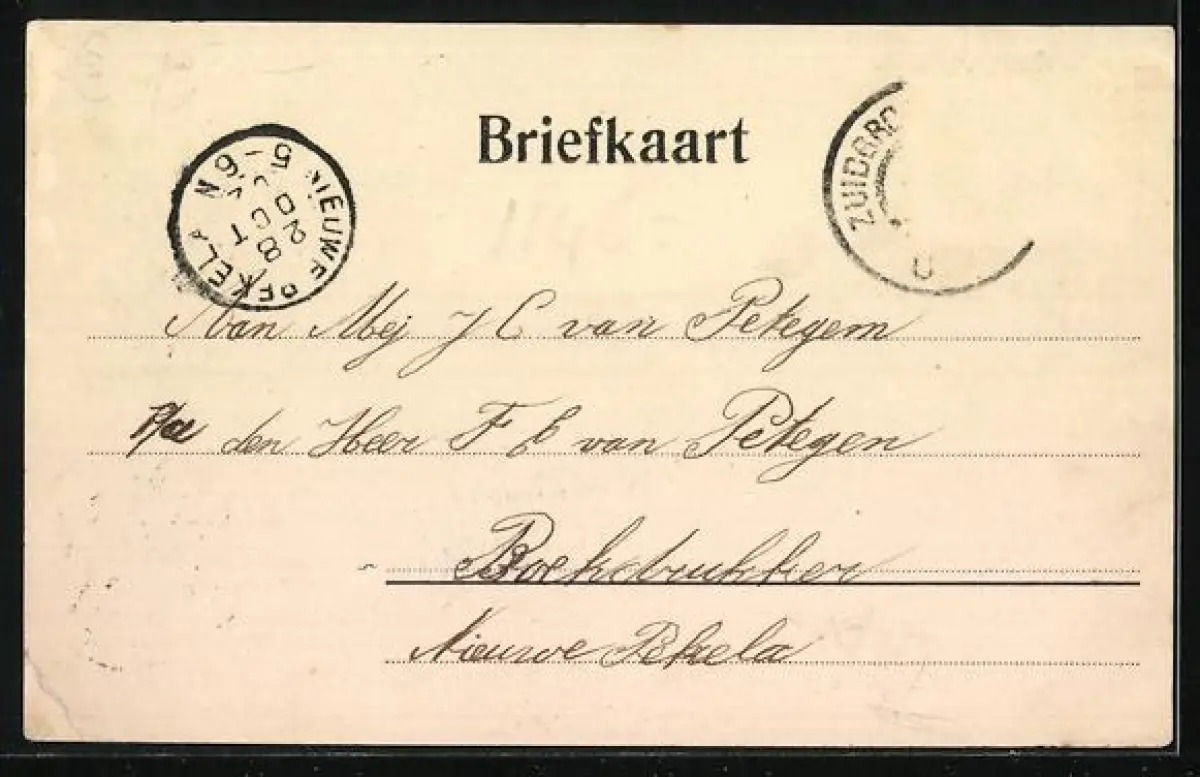 Briefkaart
NIEUWE PEKELA
5-6 N
28 OCT
ZUIDBRO
Aan Mej J C van Petegem
P/a den Heer F E van Petegen
Boekdrukker
Nieuwe Pekela